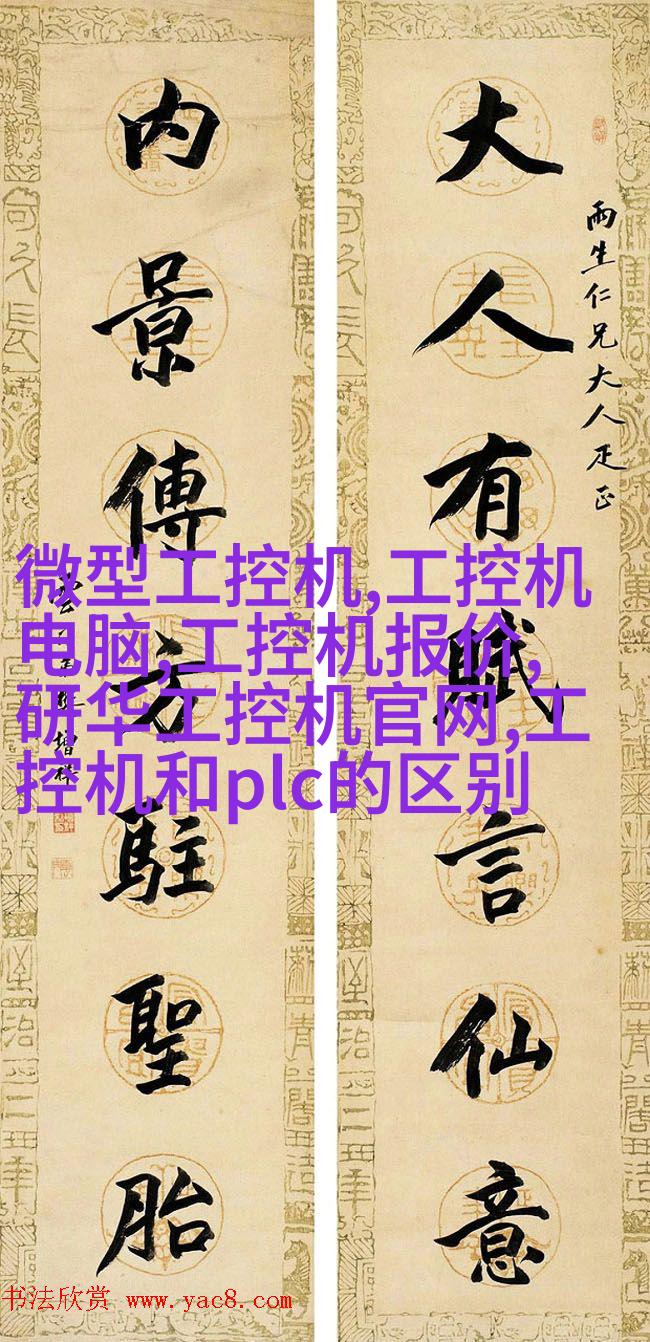 大人有賦言仙意
雨生仁兄大人疋正
内景傳方駐聖胎
增祥
微型工控机,工控机
电脑,工控机报价,
研华工控机官网,工
控机和plc的区别
书法欣赏 www.yac8.com